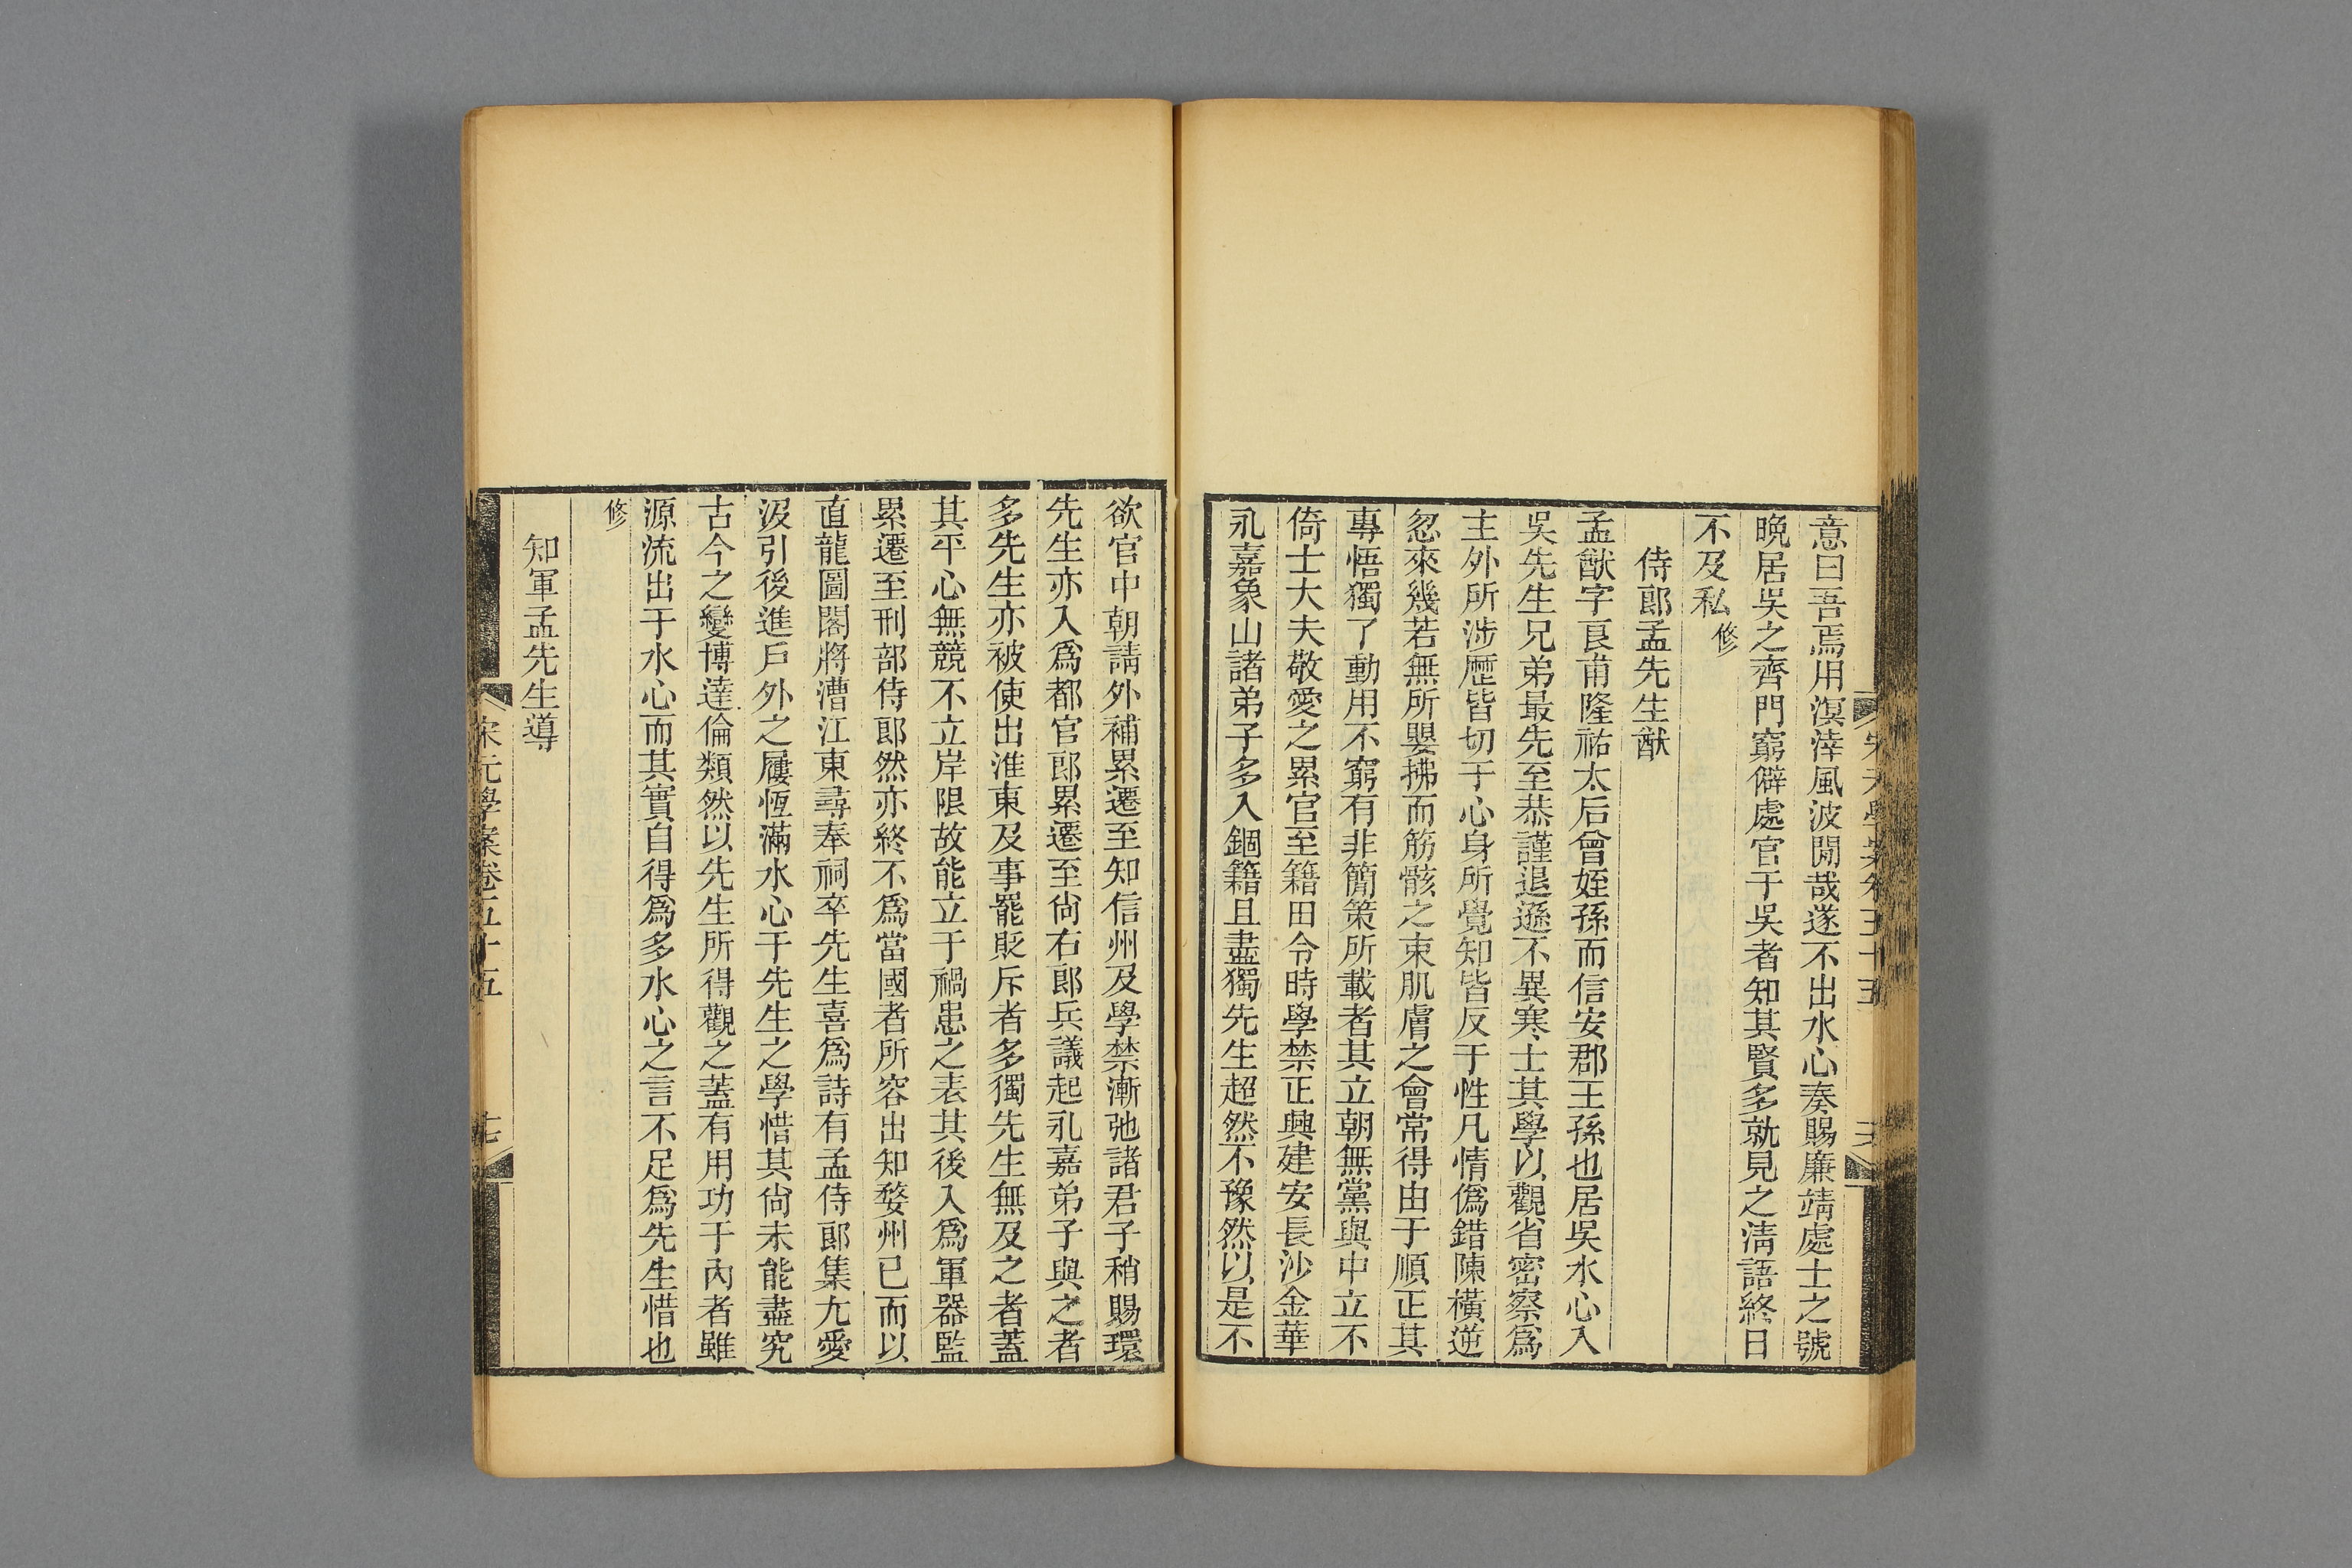 意曰吾焉用溟涬風波閒哉遂不出水心奏賜廉靖處士之號
晚居吳之齊門窮僻處官于吳者知其賢多就見之淸語終日
不及私修
侍郎孟先生猷
孟猷字良甫隆祐太后曾姪孫而信安郡王孫也居吳水心入
吳先生兄弟最先至恭謹退遜不異寒士其學以觀省密察爲
主外所涉歷皆切于心身所覺知皆反于性凡情僞錯陳橫逆
忽來幾若無所嬰拂而筋骸之束肌膚之會常得由于順正其
專悟獨了動用不窮有非簡策所載者其立朝無黨與中立不
倚士大夫敬愛之累官至籍田令時學禁正興建安長沙金華
永嘉象山諸弟子多入錮籍且盡獨先生超然不豫然以是不
欲官中朝請外補累遷至知信州及學禁漸弛諸君子稍賜環
先生亦入爲都官郎累遷至尙右郎兵議起永嘉弟子與之者
多先生亦被使出淮東及事罷貶斥者多獨先生無及之者蓋
其平心無競不立岸限故能立于禍患之表其後入爲軍器監
累遷至刑部侍郎然亦終不爲當國者所容出知婺州已而以
直龍圖閣將漕江東尋奉祠卒先生喜爲詩有孟侍郎集尢愛
汲引後進戶外之屨恆滿水心于先生之學惜其尙未能盡究
古今之變博達倫類然以先生所得觀之蓋有用功于內者雖
源流出于水心而其實自得爲多水心之言不足爲先生惜也
修
知軍孟先生導
宋元學案卷五十五